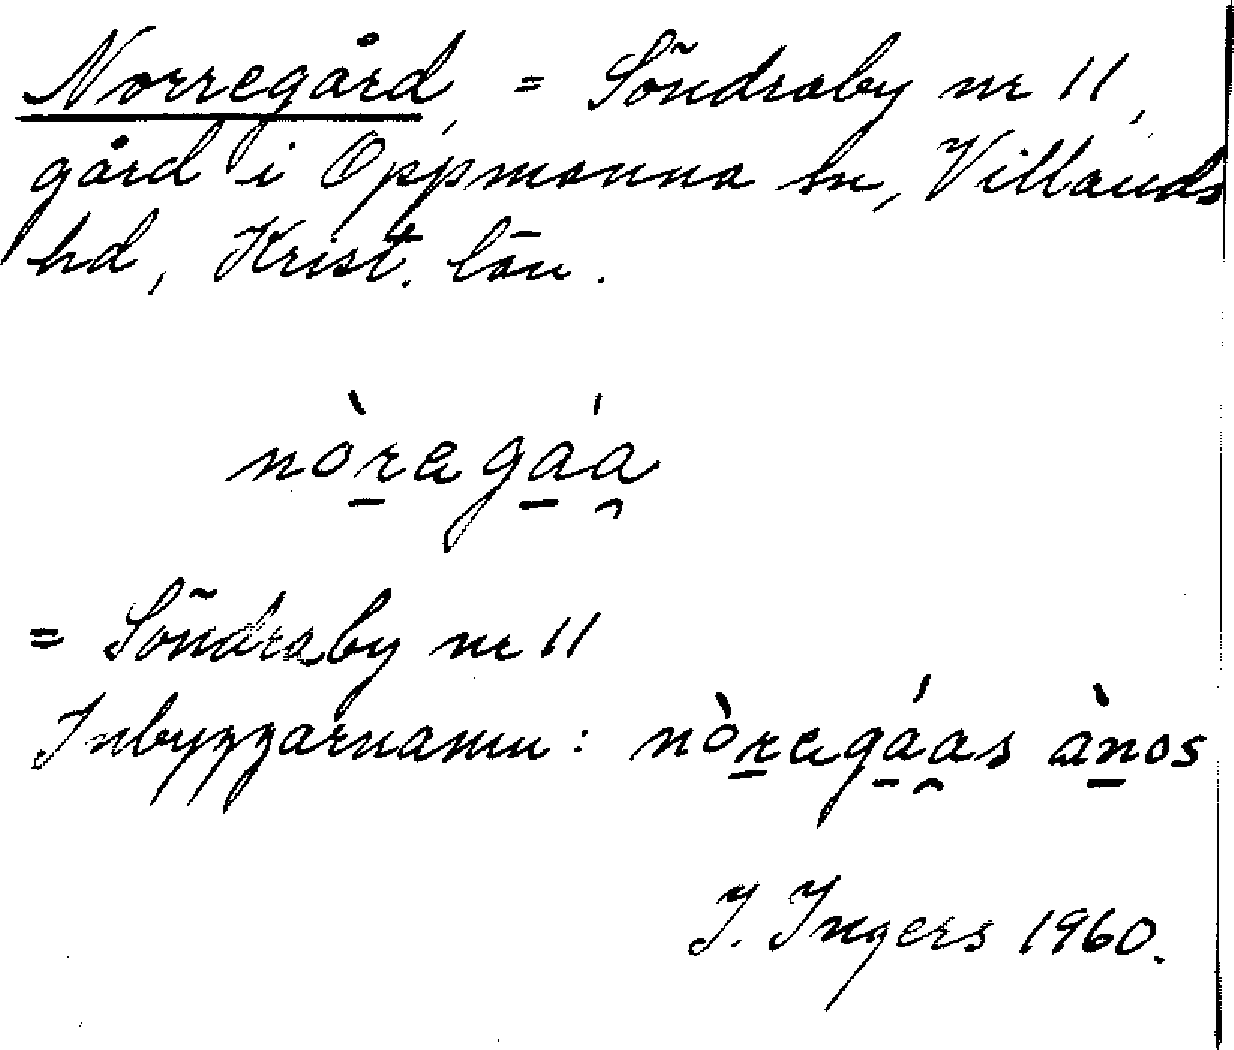 Norregård, = Söndraby nr 11,
gård i Oppmanna sn, Villands
hd, Krist. län.
nòr̲agá̲a̯
= Söndraby nr 11
Inbyggarnamn: nòr̲agá̲a̯s àn̲os
I. Ingers 1960.